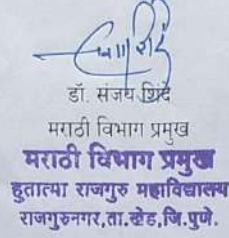 डॉ. संजय शिंदे
मराठी विभाग प्रमुख
मराठी विभाग प्रमुख
हुतात्मा राजगुरु महाविद्यालय
राजगुरुनगर,ता.खेड,जि.पुणे.